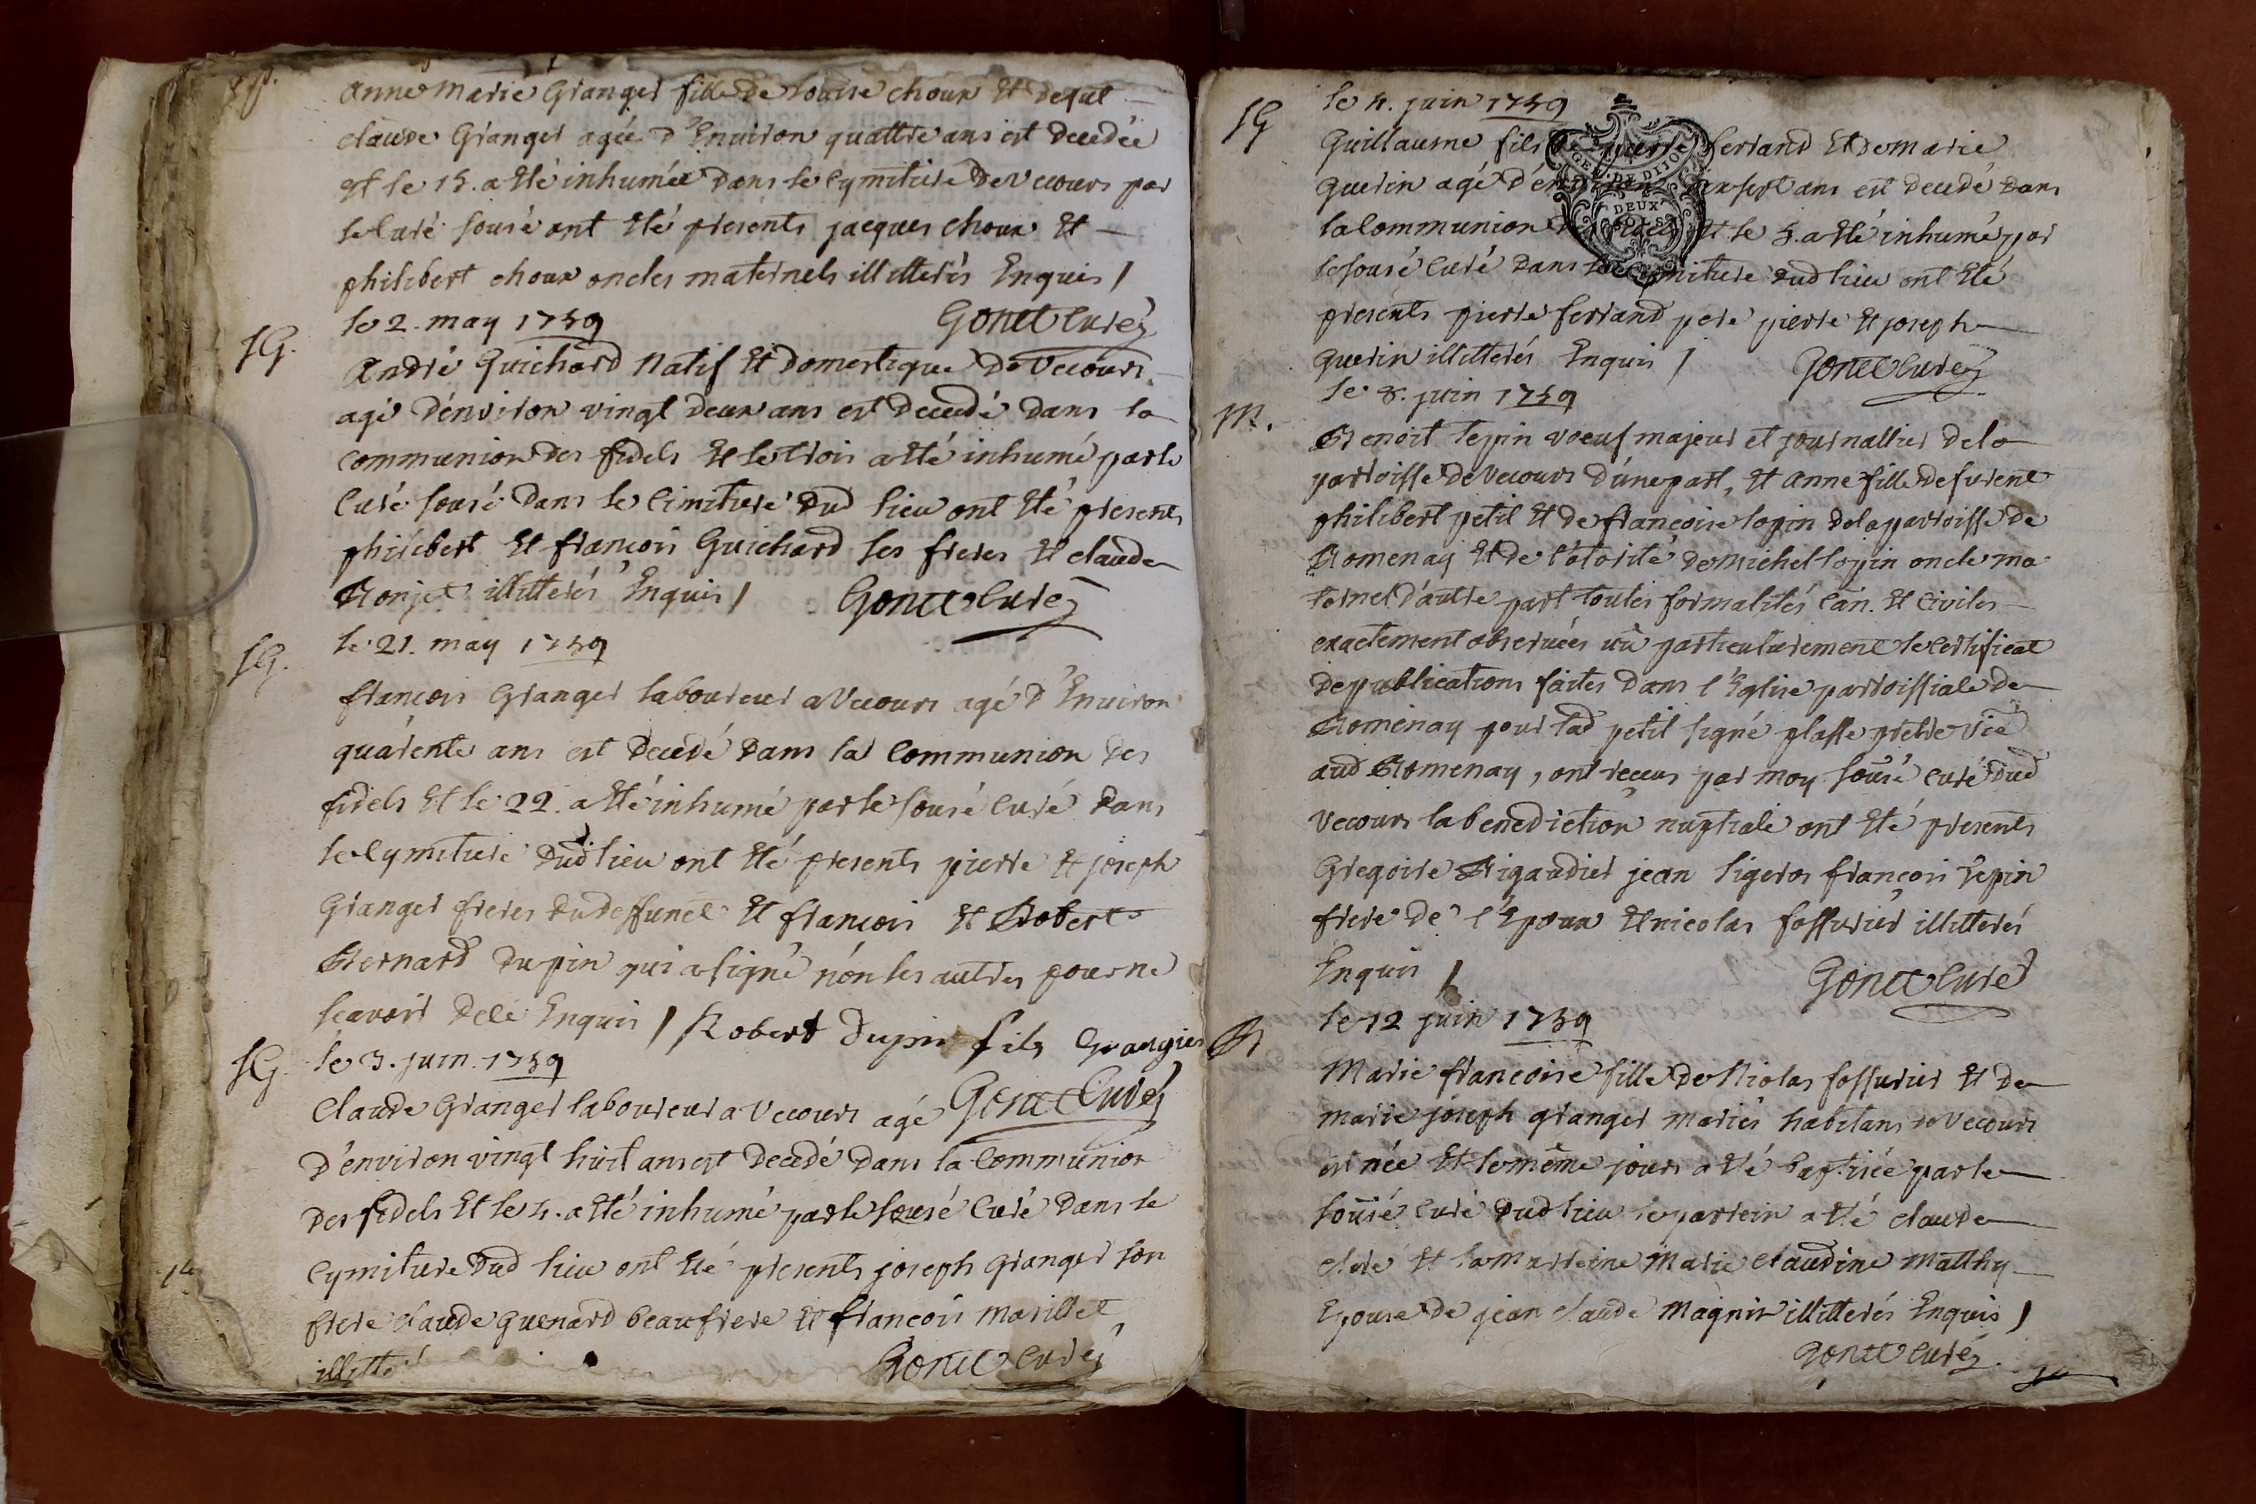 Anne Marie Granger fille de Louise choux Et de fut
claude Granger agée d'Environ quattre ans est decedée
et le 15. a Eté inhumée dans le cymitiere de Vecours par
le Curé sousé ont Eté presents jacques choux Et
philibert choux oncles maternels illitterés Enquis /
Gonet Curé
SG.
le 2. may 1759
André Guichard Natif Et domestique de Vecours
agé d'environ vingt deux ans est decedé dans la
communion des fidels Et le trois a Eté inhumé par le
Curé sousé dans le Cimitiere dud lieu ont Eté presents
philibert Et françois Guichard ses freres Et claude
Ronjet illitterés Enquis / Gonet Curé
SG.
le 21. may 1759
françois Granger laboureur a Vecours agé d'Environ
quarente ans est decedé dans la Communion des
fidels Et le 22. a Eté inhumé par le sousé Curé dans
le Cymitiere dud lieu ont Eté presents pierre Et joseph
Granger freres du deffunct Et françois Et Robert
Bernard dupin qui a signé non les autres pour ne
scavoir de ce Enquis / Robert Dupin fils Grangier
Gonet Curé
SG.
le 3. juin 1759
Claude Granger laboureur a Vecours agé
d'environ vingt huit ans est decedé dans la Communion
des fidels Et le 4. a Eté inhumé par le sousé Curé dans le
Cymitiere dud lieu ont Eté presents joseph Granger son
frere claude Guenard beaufrere Et françois Marillet
illitté Gonet Curé
SG
le 4. juin 1759
Guillaume fils de pierre ferrand Et de marie
Guerin agé d'environ dix sept ans est decedé dans
la Communion des fidels Et le 5. a Eté inhumé par
le sousé Curé dans le Cymitiere dud lieu ont Eté
presents pierre ferrand pere pierre Et joseph
Guerin illitterés Enquis / Gonet Curé
GE. DE DIJON
DEUX
SOLS
M.
le 8. juin 1759
Benoit Lepin voeuf majeur et journallier de la
parroisse de Vecours d'une part, Et Anne fille de furent
philibert petit Et de françoise lopin de la parroisse de
Romenay Et de l'otorité de michel lopin oncle ma
ternel d'autre part toutes formalités Can. Et Civiles
exactement observées vû particulierement le Certificat
de publications faites dans l'Eglise parroissiale de
Romenay pour lad petit signé plasse pretre vice
aud Romenay, ont receus par moy sousé Curé dud
Vecours la benediction nuptiale ont Eté presents
Gregoire Rigaudier jean ligeron françois Lepin
frere de l'Epoux Et nicolas fossurier illitterés
Enquis / Gonet Curé
B
le 12 juin 1759
Marie françoise fille de Nicolas fossurier Et de
marie joseph granger mariés habitans de Vecours
est née Et le même jours a Eté baptisée par le
sousé Curé dud lieu le parrein a Eté claude
clere Et la Marreine Marie Claudine Matthy
Epouse de jean claude Magnin illitterés Enquis /
Gonet Curé